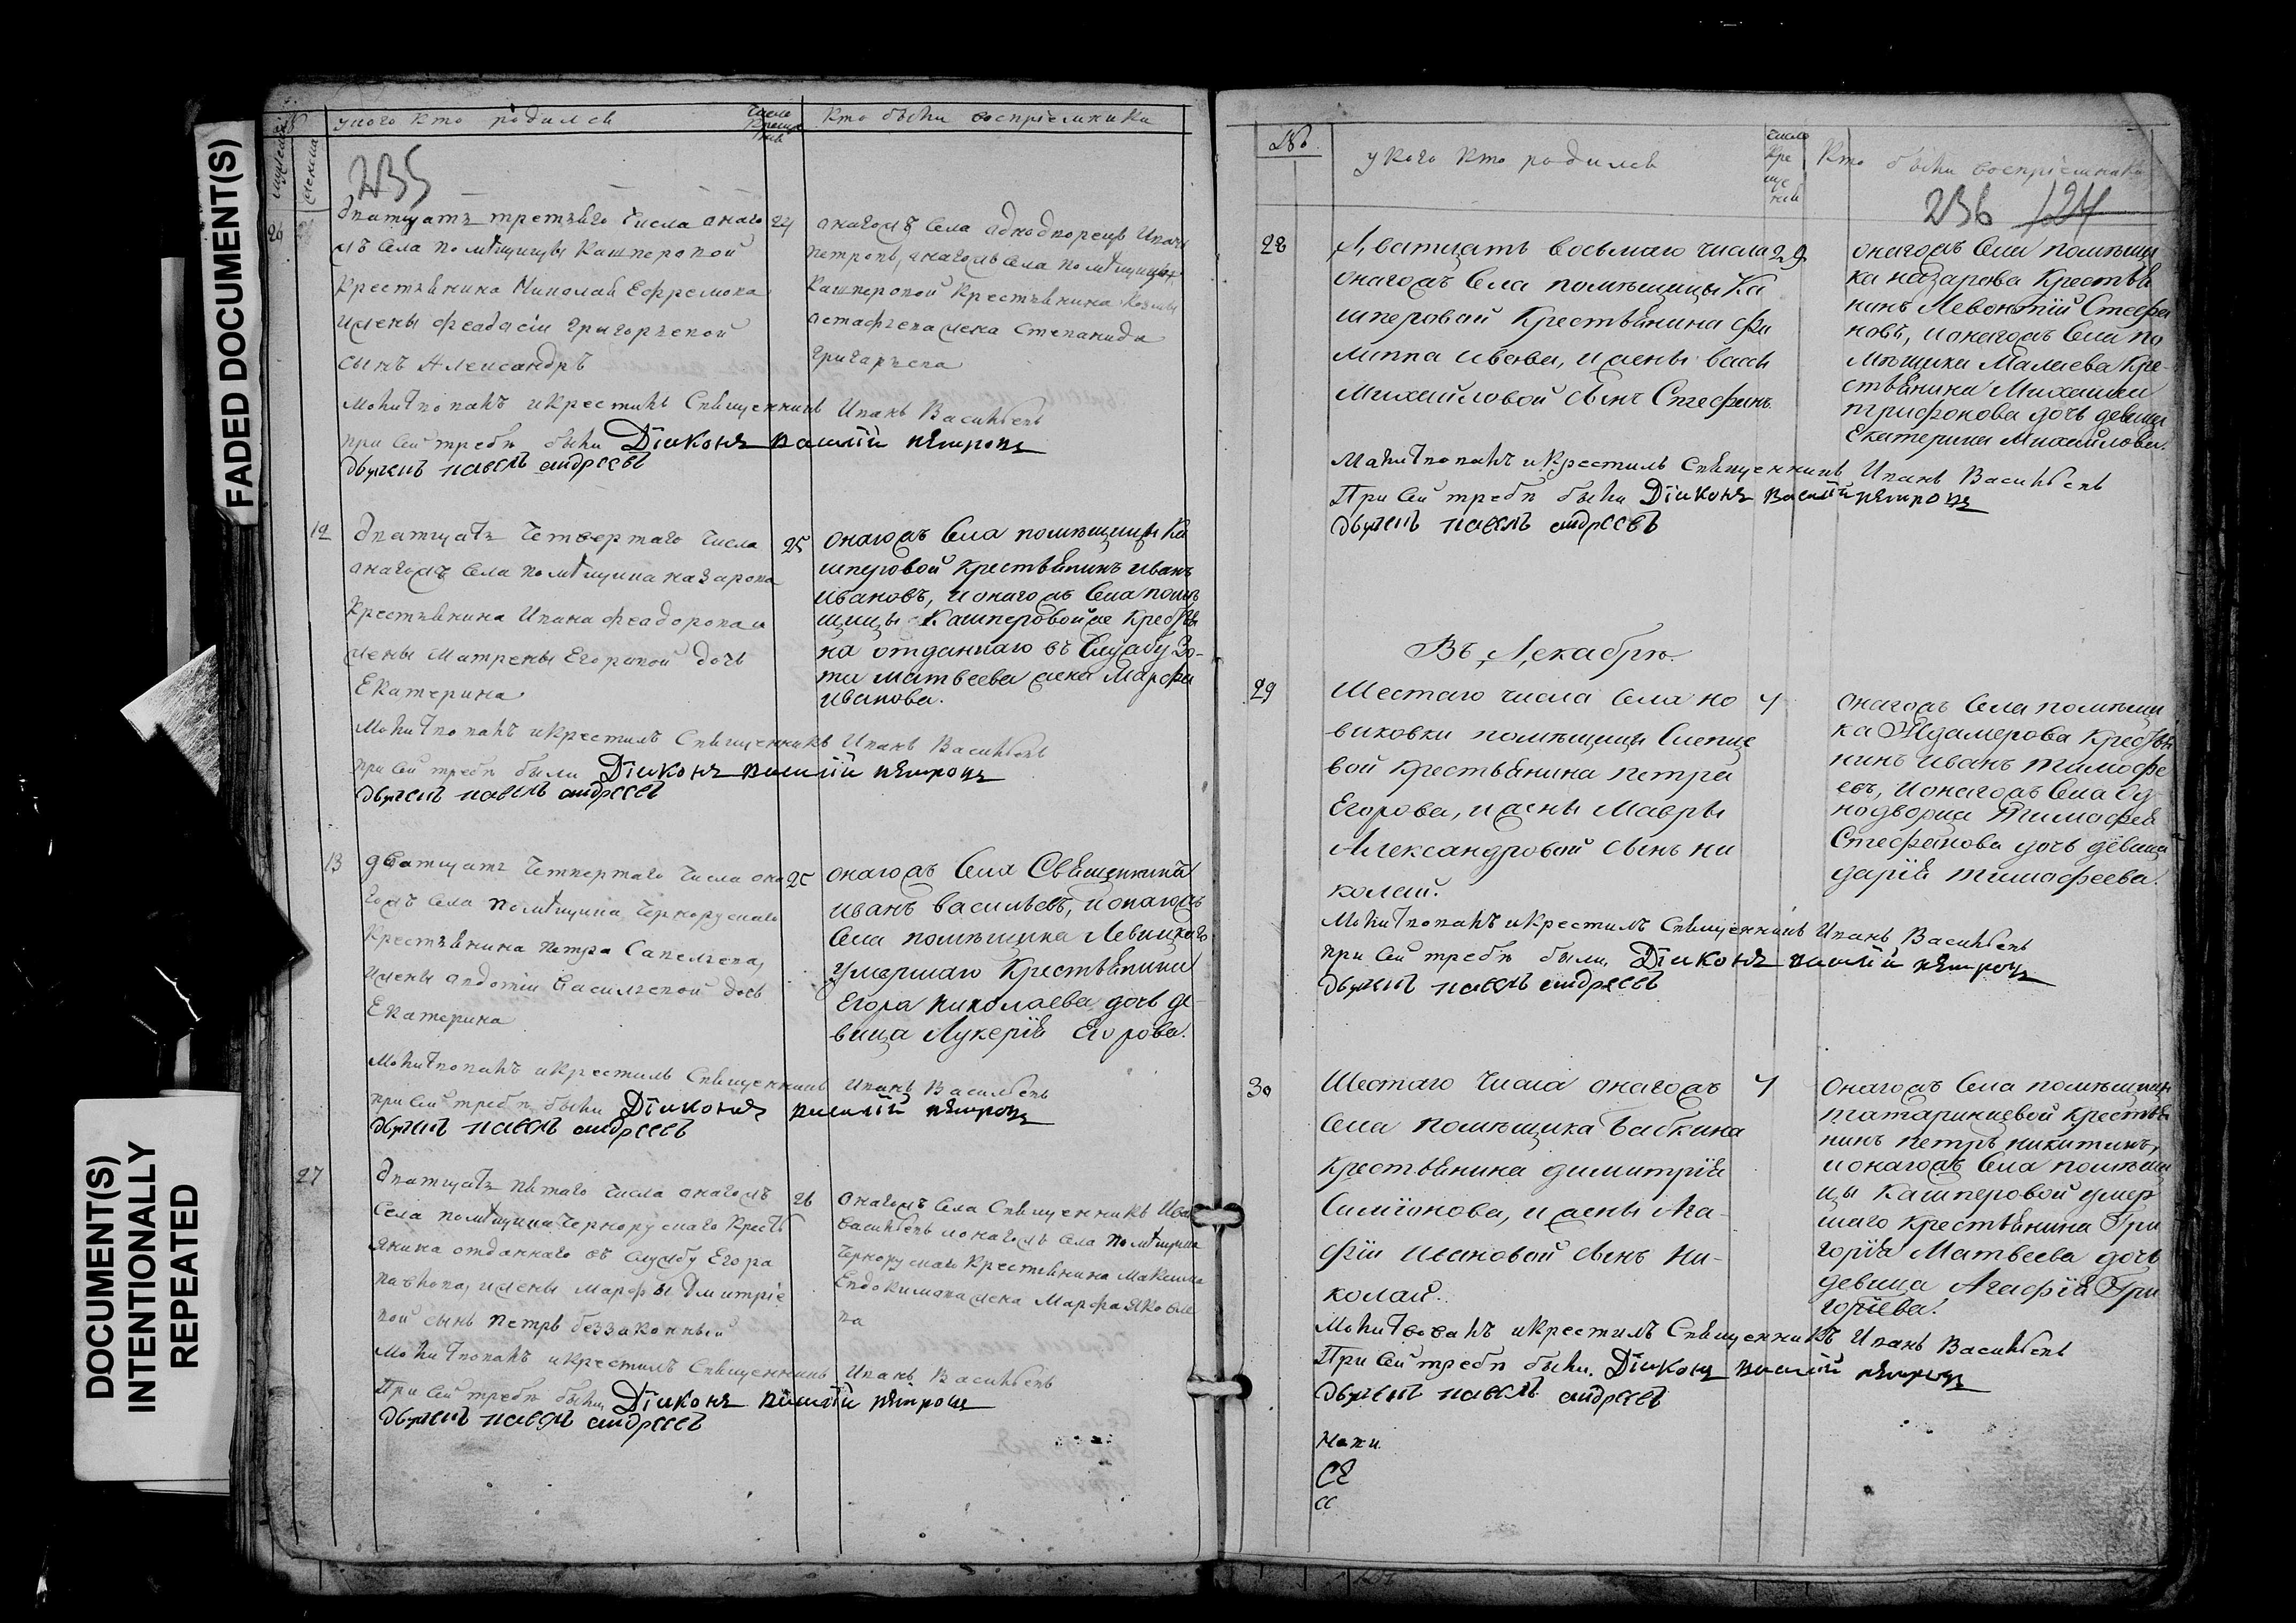 FADED DOCUMENT(S)
DOCUMENT(S)
INTENTIONALLY
REPEATED
№
мужеска
женска
у кого кто родился
число
креще
нiя
кто были воспрiемники
235
26
дватцать третьяго числа онаго
жъ села помѣщицы Кашперовой
крестьянина Николая Ефремова
и жены Феодосiи Григорьевой
сынъ Александръ
24
онагожъ села однодворецъ
Петровъ, онагожъ села помѣщицы
Кашперовой крестьянина Козмы
Астафьева жена Степанида
Григорьева
Молитвовалъ и крестилъ Священникъ Иванъ Васильевъ
при сей требѣ были Дiяконъ Василiй Петровъ
дьячекъ Павелъ Андреевъ
12
дватцать четвертаго числа
онагожъ села помѣщика Назарова
крестьянина Ивана Феодорова и
жены Матрены Егоровой дочь
Екатерина
25
онагожъ села помѣщицы Ка
шперовой крестьянинъ Иванъ
Ивановъ, и онагожъ села помѣ
щицы Кашперовой же крестья
на отданнаго въ службу Зо-
та Матвеева жена Марфа
Иванова.
Молитвовалъ и крестилъ Священникъ Иванъ Васильевъ
при сей требѣ были Дiяконъ Василiй Петровъ
дьячекъ Павелъ Андреевъ
13
дватцать четвертаго числа она
гожъ села помѣщика Чернорускаго
крестьянина Петра Савельева,
и жены Авдотiи Васильевой дочь
Екатерина
25
онагожъ села Священникъ
Иванъ Васильевъ, и онагожъ
села помѣщика Левицкаго
умершаго крестьянина
Егора Николаева дочь де-
вица Лукерiя Егорова.
Молитвовалъ и крестилъ Священникъ Иванъ Васильевъ
при сей требѣ были Дiяконъ Василiй Петровъ
дьячекъ Павелъ Андреевъ
27
дватцать пятаго числа онагожъ
села помѣщика Чернорускаго кресть
янина отданнаго въ службу Егора
Павлова, и жены Марфы Дмитрiе
вой сынъ Петръ беззаконный
26
онагожъ села Священникъ Ива
Васильевъ и онагожъ села помѣщика
Чернорускаго крестьянина Максима
Евдокимова жена Марфа Яковле
ва
Молитвовалъ и крестилъ Священникъ Иванъ Васильевъ
При сей требѣ были Дiяконъ Василiй Петровъ
дьячекъ Павелъ Андреевъ
№
у кого кто родился
число
кре
ще
нiя
Кто были воспрiемники
236 124
28
Дватцать восьмаго числа
онагожъ села помѣщицы Ка
шперовой крестьянина Фи
липпа Львова, и жены Вассы
Михайловой сынъ Стефанъ
29
онагожъ села помѣщи
ка Назарова крестья
нинъ Левонтiй Стефа
новъ, и онагожъ села по
мѣщика Малаева кре-
стьянина Михаила
Трифонова дочь девица
Екатерина Михайлова.
Молитвовалъ и крестилъ Священникъ Иванъ Васильевъ
При сей требѣ были Дiяконъ Василiй Петровъ
дьячекъ Павелъ Андреевъ
Въ Декабрѣ.
29
Шестаго числа села Но
виковки помѣщицы Слепце
вой крестьянина Петра
Егорова, и жены Мавры
Александровой сынъ Ни
колай.
7
онагожъ села помѣщи
ка Ждамерова крестья
нинъ Иванъ Тимофе
евъ, и онагожъ села од
нодворца Тимофея
Стефанова дочь девица
Дарiя Тимофеева.
Молитвовалъ и крестилъ Священникъ Иванъ Васильевъ
при сей требѣ были Дiяконъ Василiй Петровъ
дьячекъ Павелъ Андреевъ
30
Шестаго числа онагожъ
села помѣщика Бабкина
крестьянина Димитрiя
Симiонова, и жены Ага-
фiи Ивановой сынъ Ни-
колай.
7
онагожъ села помѣщицы
Татаринцевой крестья
нинъ Петръ Никитинъ,
и онагожъ села помѣщи
цы Кашперовой умер
шаго крестьянина Гри
горiя Матвеева дочь
девица Агафiя Гри
горiева.
Молитвовалъ и крестилъ Священникъ Иванъ Васильевъ
При сей требѣ были Дiяконъ Василiй Петровъ
дьячекъ Павелъ Андреевъ